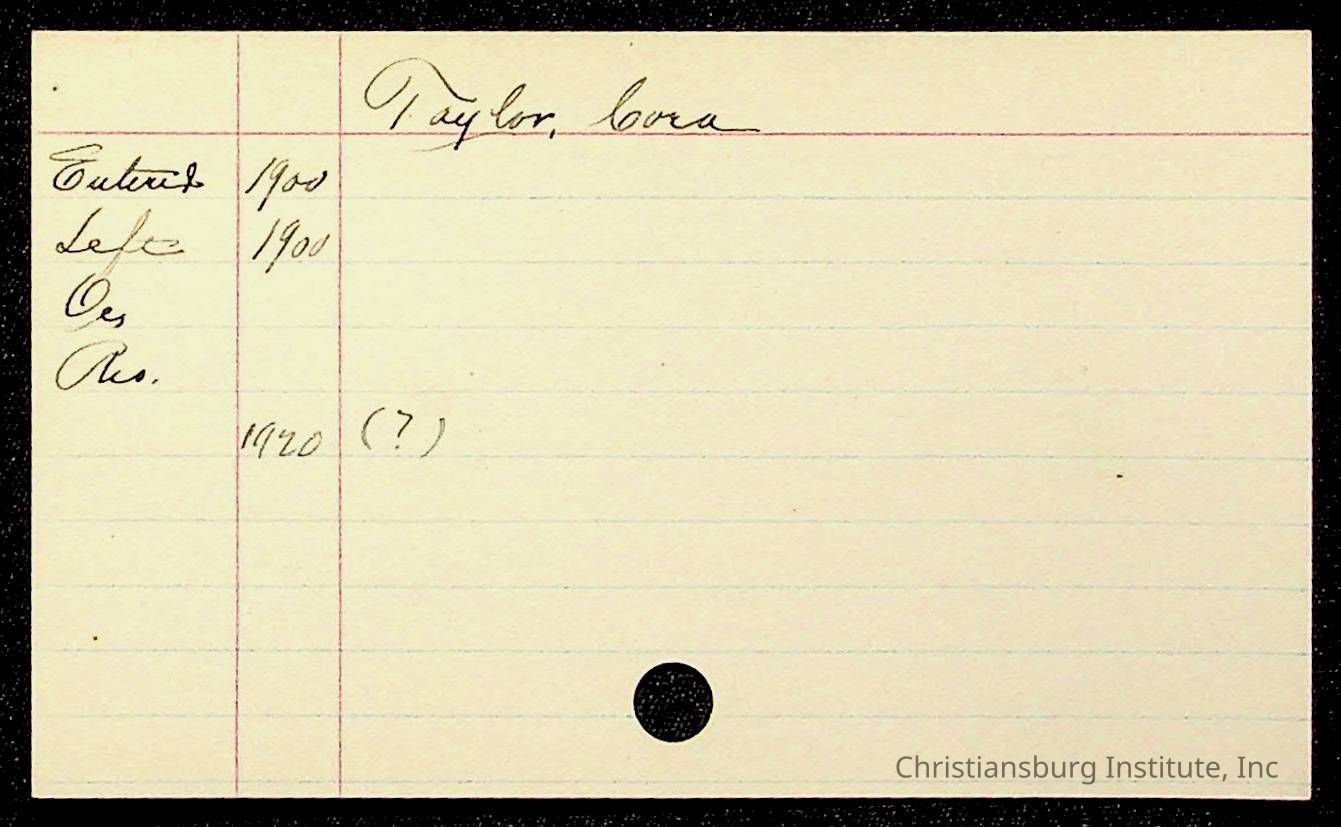 Taylor, Cora
Entered 1900
Left 1900
Oc,
Res.
1920 (?)
Christiansburg Institute, Inc